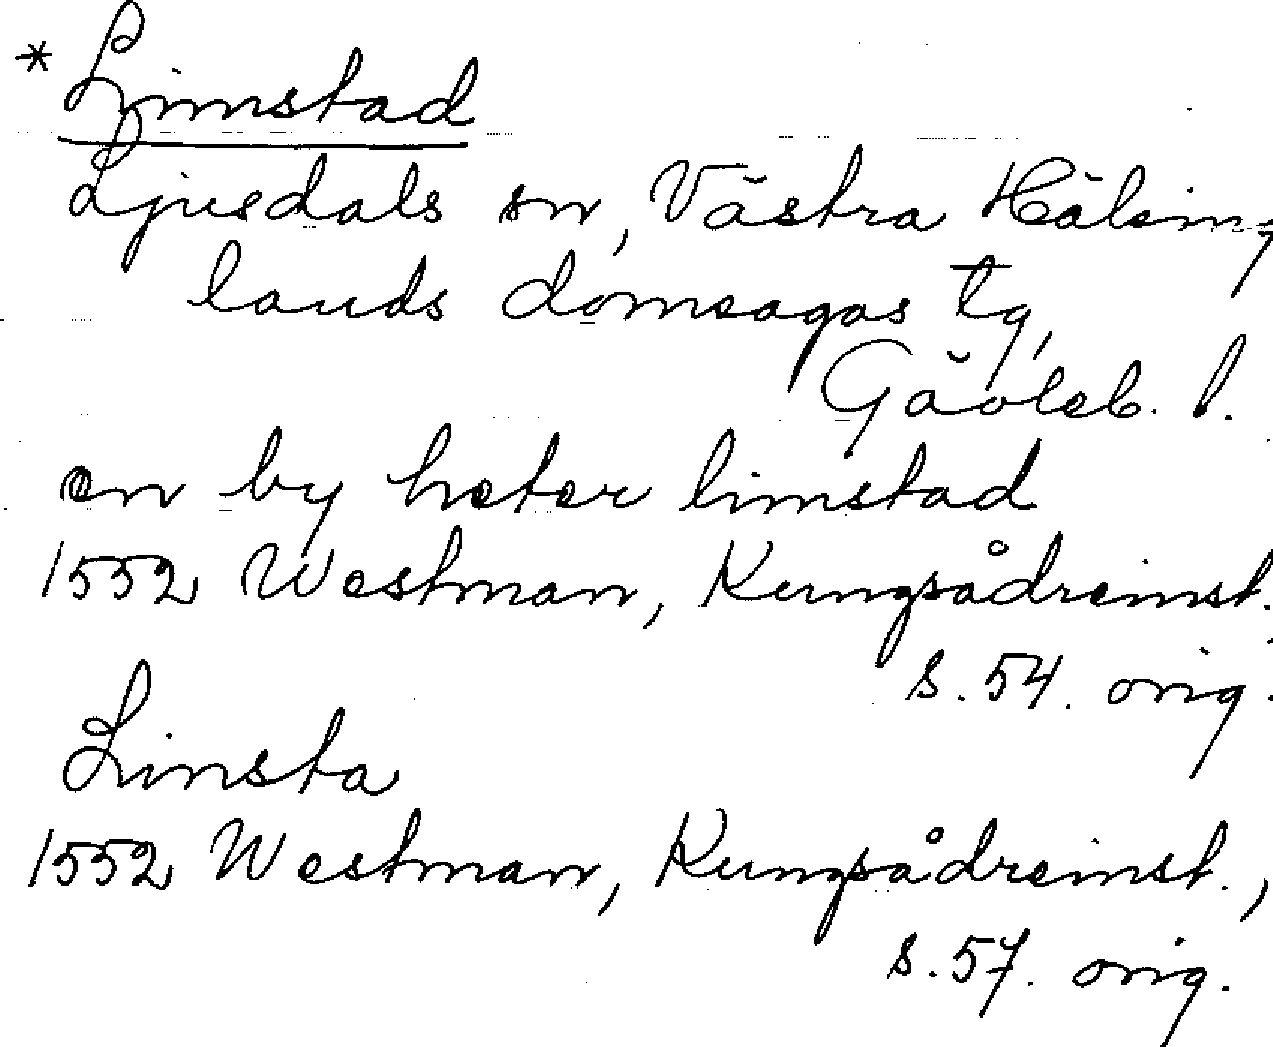 * Linnstad
Ljusdals sn, Västra Hälsing
lands domsagas tg,
Gävleb. l.
en by heter linnstad
1552 Westman, Kungsådreinst.
s. 54. orig.
Linsta
1552 Westman, Kungsådreinst.,
s. 57. orig.